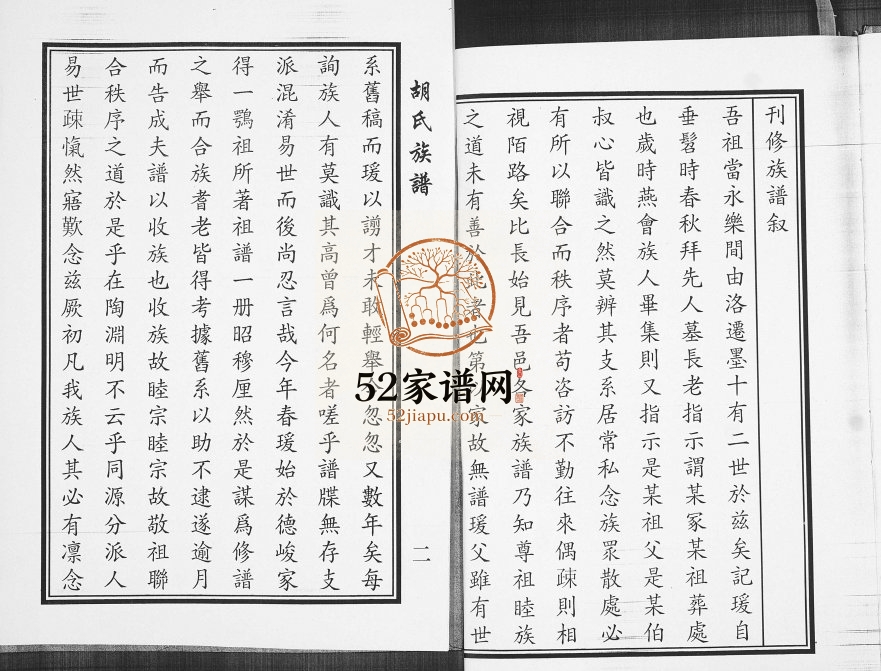 刊修族譜叙
吾祖當永樂間由洛遷墨十有二世於兹矣記瑗自
垂髫時春秋拜先人墓長老指示謂某冢某祖葬處
也歲時燕會族人畢集則又指示是某祖父是某伯
叔心皆識之然莫辨其支系居常私念族眾散處必
有所以聯合而秩序者苟咨訪不勤往來偶疎則相
視陌路矣比長始見吾邑各家族譜乃知尊祖睦族
之道未有善於 者也第 家故無譜瑗父雖有世
胡氏族譜
二
系舊稿而瑗以謭才未敢輕舉 忽忽又數年矣每
詢族人有莫識其高曾爲何名者嗟乎譜牒無存支
派混淆易世而後尚忍言哉今年春瑗始於德峻家
得一鶚祖所著祖譜一册昭穆厘然於是謀爲修譜
之舉而合族耆老皆得考據舊系以助不逮遂逾月
而告成夫譜以收族也收族故睦宗睦宗故敬祖聯
合秩序之道於是乎在陶淵明不云乎同源分派人
易世疎愾然寤歎念兹厥初凡我族人其必有凛念
52家谱网
52jiapu.com